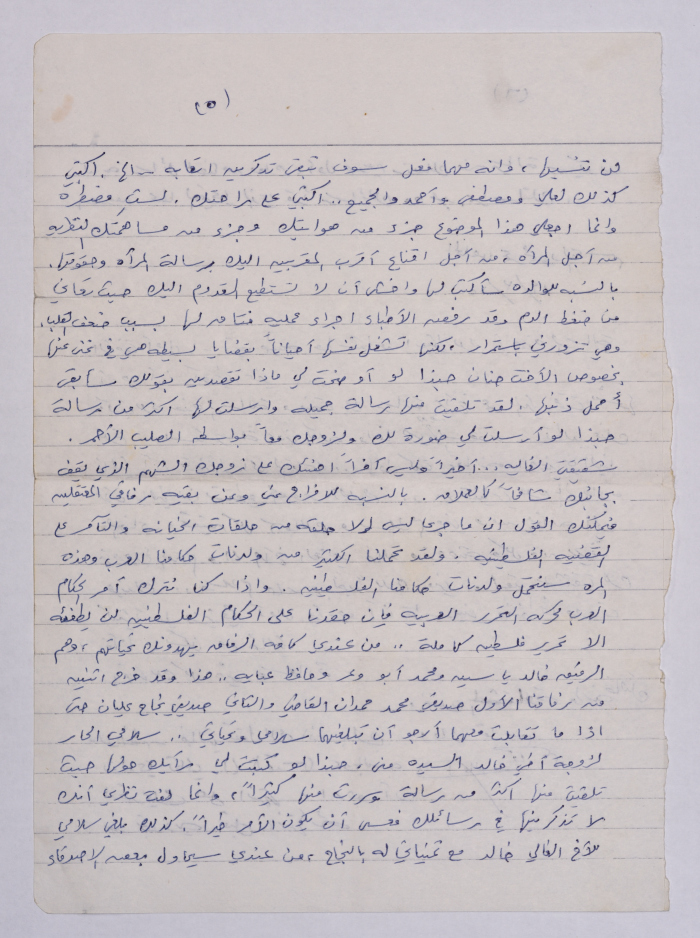 (٥)
من تنسيها، وانه مهما فعل سوف تبقى تذكرين اتعابه .. الخ. اكتبي
كذلك لعلي ومصطفى وأحمد والجميع .. اكتبي على راحتك. لست مضطرة
وانما اجعلي هذا الموضوع جزء من هوايتك وجزء من مساهمتك النظريه
من أجل المرأه، من أجل اقناع أقرب المقربين اليك برسالة المرأه وحقوقها.
بالنسبه للوالده سأكتب لها واخشى أن لا تستطيع القدوم اليك حيث تعاني
من ضغط الدم وقد رفض الأطباء اجراء عمليه لها بسبب ضعف القلب.
وهي تزورني باستمرار، لكنها تشغل نفسها أحياناً بقضايا بسيطه هي في غنى عنها
بخصوص الأخت حنان حبذا لو أوضحت لي ماذا تقصدين بقولك سأبقى
أحمل ذنبها. لقد تلقيت منها رسالة جميله وارسلت لها اكثر من رسالة
حبذا لو أرسلت لي صورة لك ولزوجك معاً بواسطه الصليب الأحمر.
شقيقتي الغاليه .. أخيراً وليس آخراً اهنئك على زوجك الشهم الذي يقف
بجانبك شامخاً كالعلامه. بالنسبه للافراج عني وعن بقيه رفاقي المعتقلين
فيمكنك القول ان ما جرى ليس لولا حلقه من حلقات الخيانه والتآمر على
القضيه الفلسطينيه. ولقد تحملنا الكثير من ولدنات حكامنا العرب وهذه
المره سنتحمل ولدنات حكامنا الفلسطينيه. واذا كنا نترك أمر الحكام
العرب لحركه التحرر العربيه فإن حقدنا على الحكام الفلسطينين لن يطفئه
الا تحرير فلسطين كاملة .. من عندي كافه الرفاق يهدونك تحياتهم، وهم
الرفيق خالد ياسين ومحمد أبو وعر وحافظ عبايه .. هذا وقد خرج اثنين
من رفاقنا الأول صديقي محمد حمدان القاضي والثاني صديقي نجاح عليان حتى
اذا ما تقابلت معهما أرجو أن تبلغيهما سلامي وتحياتي .. سلامي الحار
لزوجة أخي خالد السيده منى، حبذا لو كتبت لي رأيك حولها حيث
تلقيت منها اكثر من رسالة وسررت منها كثيراً، وانما لفت نظري أنك
لا تذكرينها في رسائلك فعسى أن يكون الأمر خيراً. كذلك بلغي سلامي
للأخ الغالي خالد مع تمنياتي له بالنجاح، من عندي سيحاول بعض الاصدقاء